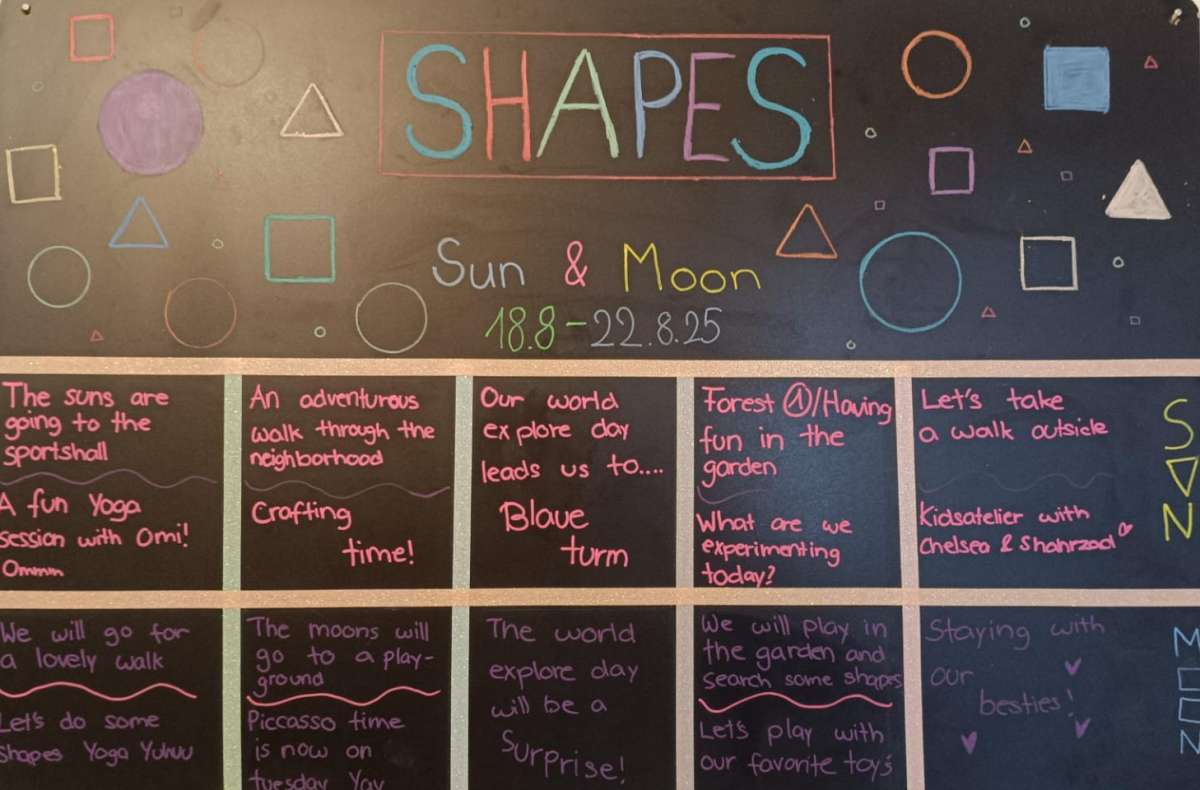 SHAPES
Sun & Moon
18.8-22.8.25
The suns are
going to the
sportshall
A fun Yoga
session with Omi!
Ommm
An adventurous
walk through the
neighborhood
Crafting
time!
Our world
explore day
leads us to....
Blaue
turm
Forest ①/Having
fun in the
garden
What are we
experimenting
today?
Let's take
a walk outside
Kidsatelier with
Chelsea & Shahrzad
S
U
N
We will go for
a lovely walk
Let's do some
shapes Yoga Yuhuu
The moons will
go to a play-
ground
Piccasso time
is now on
tuesday Yay
The world
explore day
will be a
Surprise!
We will play in
the garden and
search some shapes
Let's play with
our favorite toys
Staying with
our
besties!
M
O
O
N